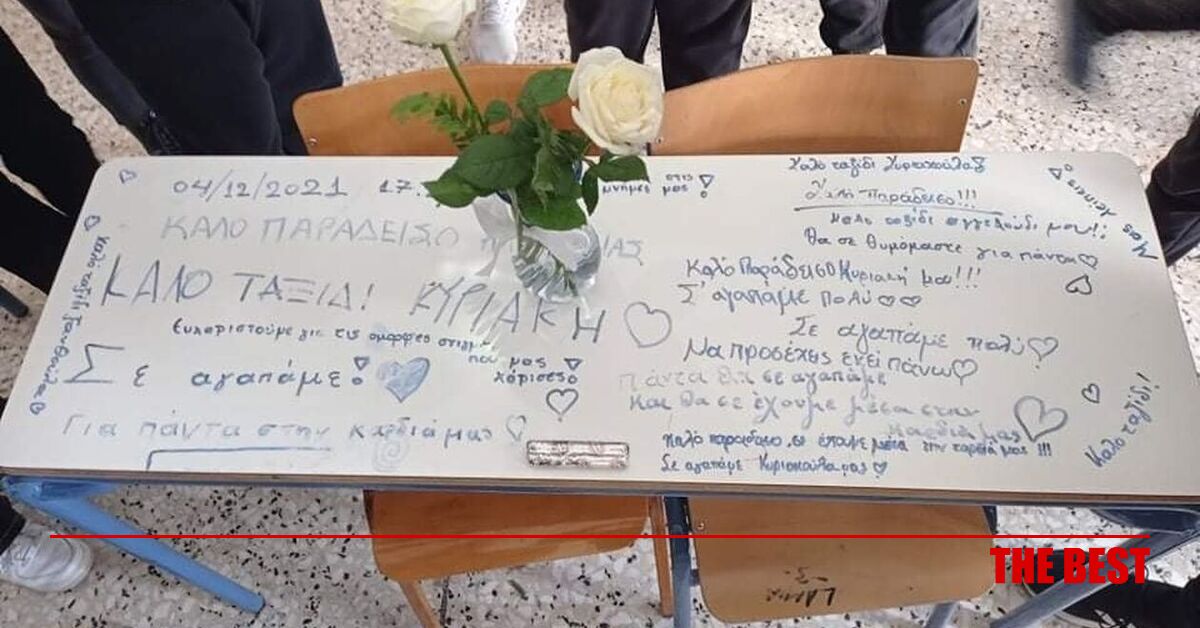 04/12/2021 17.
ΚΑΛΟ ΠΑΡΑΔΕΙΣΟ
ΚΑΛΟ ΤΑΞΙΔΙ! ΚΥΡΙΑΚΗ
Ευχαριστούμε για τις όμορφες στιγμ
που μας
χάρισες
Σε αγαπάμε!
Για πάντα στην καρδιά μας
Καλό ταξίδι
στις
μνήμες μας!
Καλό ταξίδι Κυριακούλα
Καλό Παράδεισο!!!
Καλό ταξίδι αγγελούδι μου!!
Θα σε θυμόμαστε για πάντα
Καλό Παράδεισο Κυριακή μου!!!
Σ'αγαπάμε πολύ
Σε αγαπάμε πολύ
Να προσέχεις εκεί πάνω
Πάντα θα σε αγαπάμε
και θα σε έχουμε μέσα στην
καρδιά μας
Καλό παράδεισο, σε έχουμε μέσα στην καρδιά μας!!!
Σε αγαπάμε Κυριακούλα μας
Μας λείπεις
Καλό ταξίδι!
THE BEST